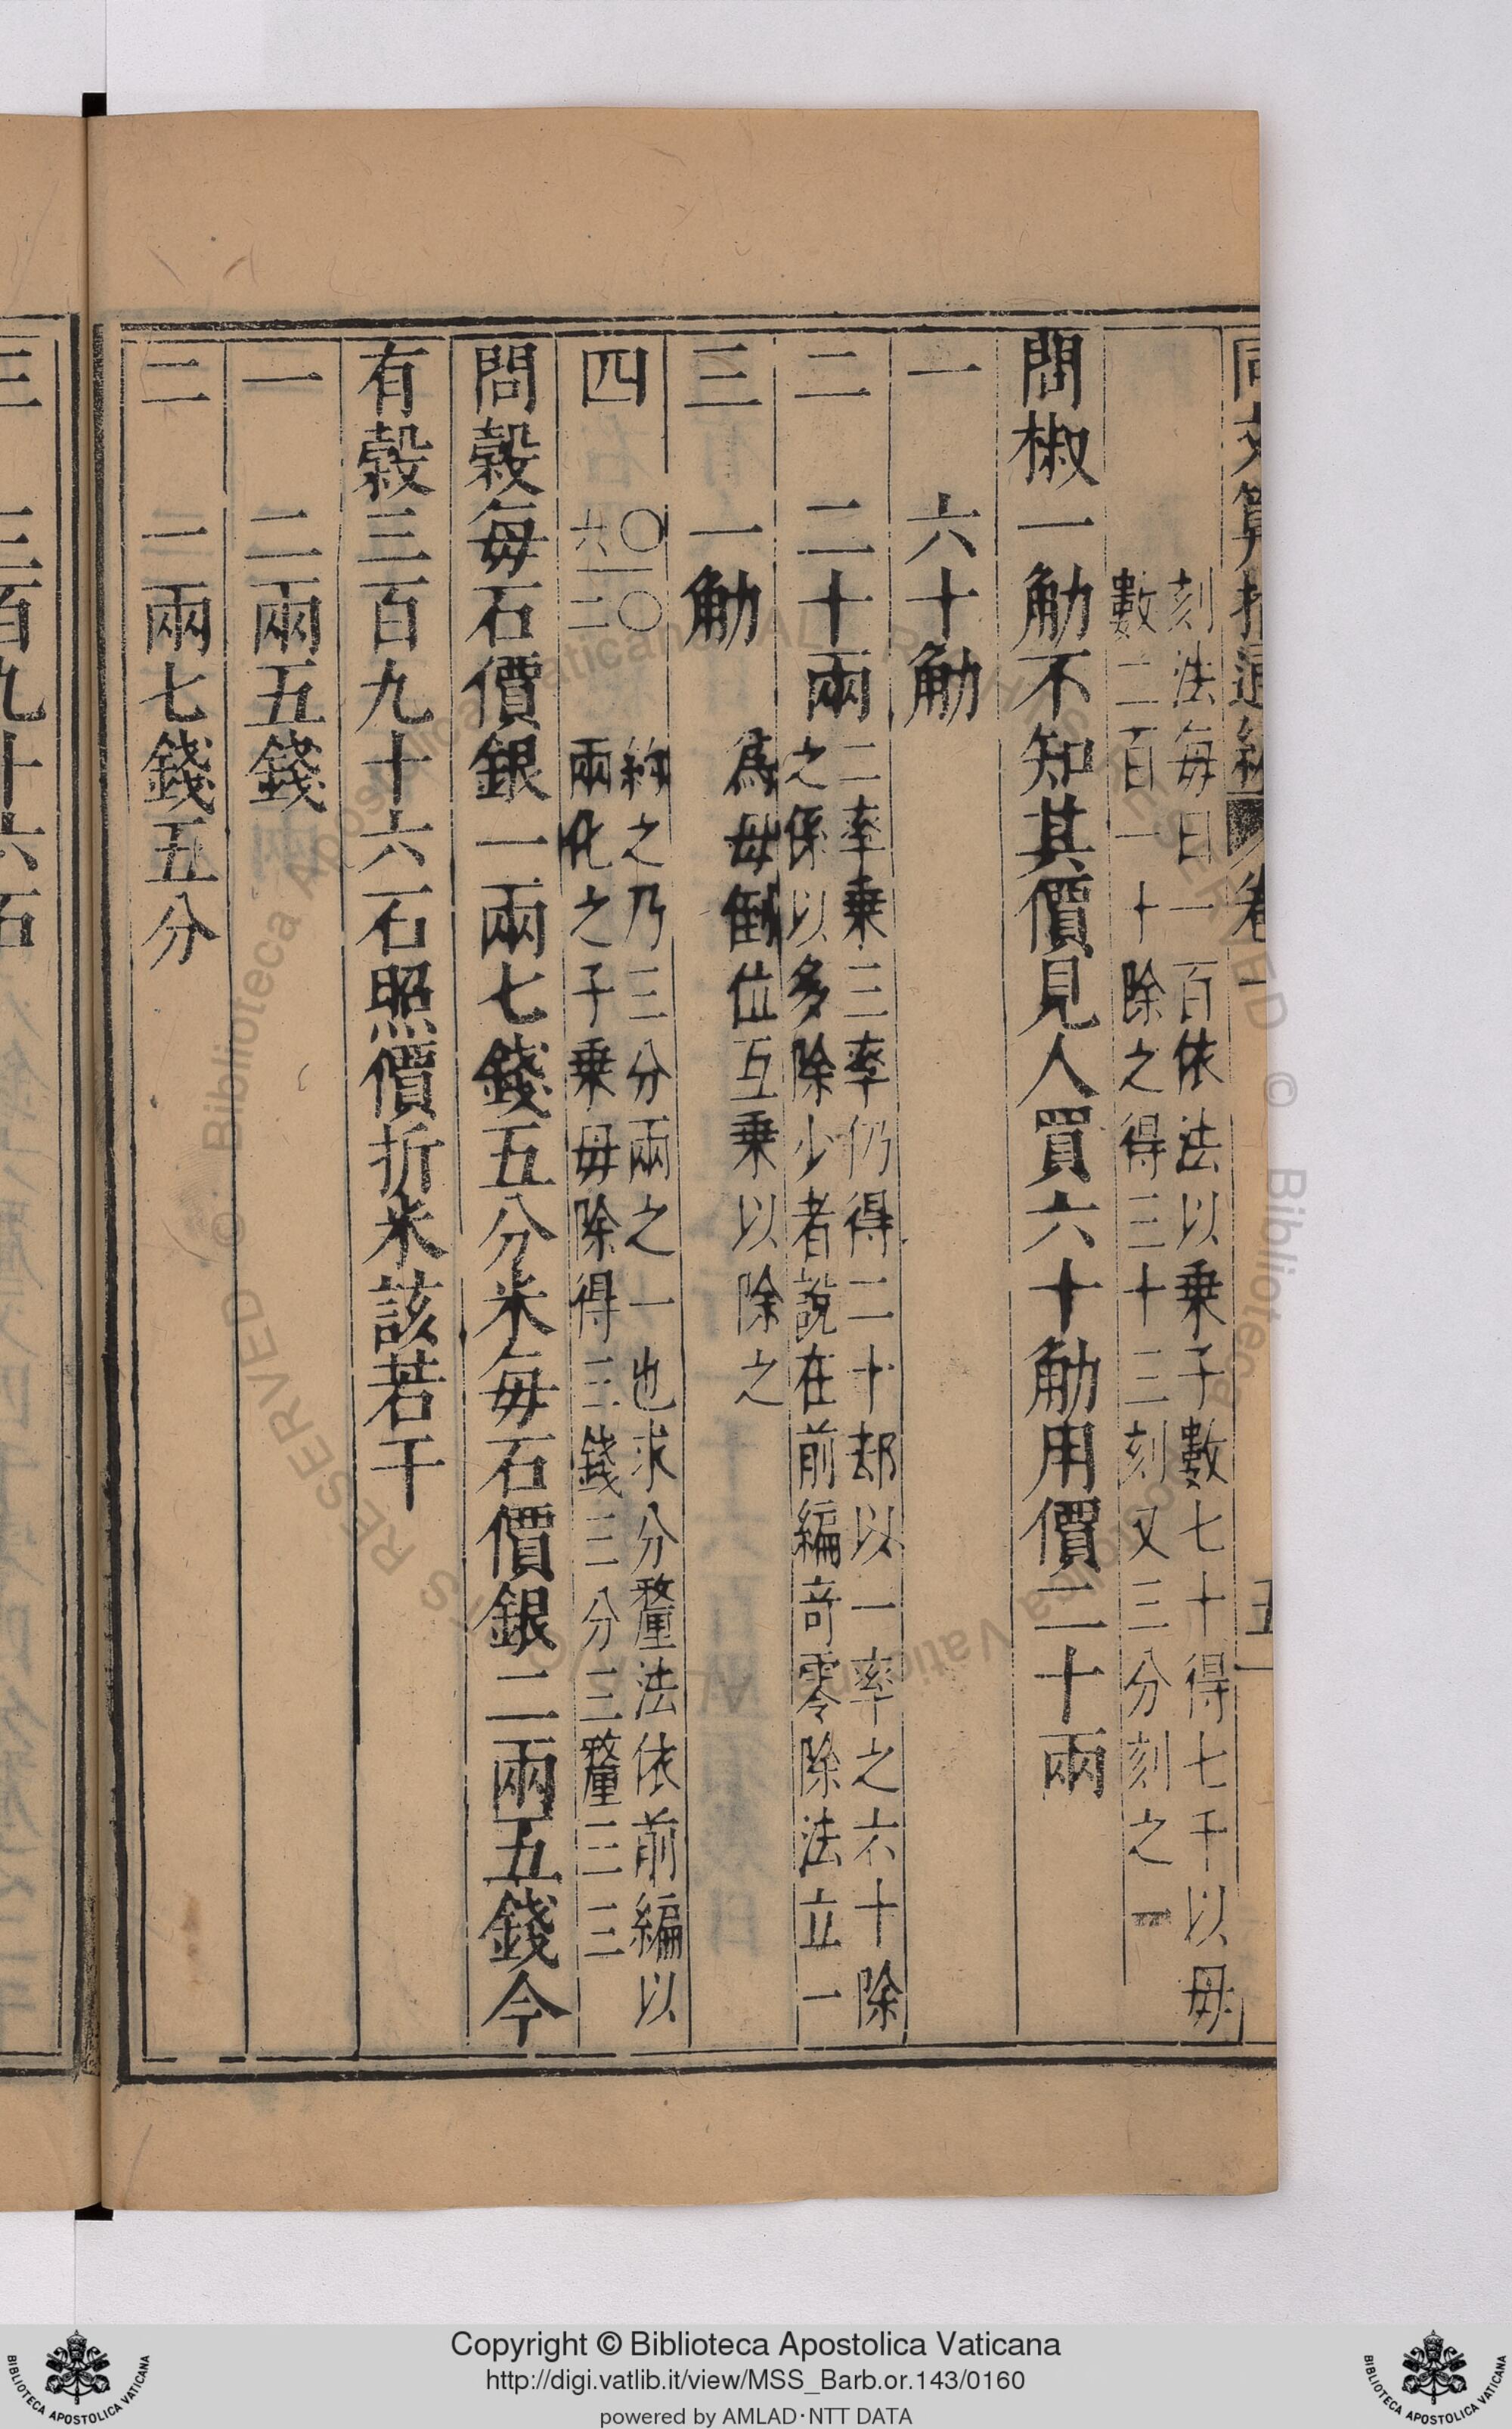 同文算指通編 卷一 五
刻法每日一百依法以乗子數七十得七千以毋
數二百一十除之得三十三刻又三分刻之一
問椒一觔不知其價見人買六十觔用價二十兩
一 六十觔
二 二十兩 二率乗三率仍得二十却以一率之六十除
之係以多除少者說在前編竒零除法立一
三 一觔 爲母倒位互乗以除之
四 〇〇 約之乃三分兩之一也求分釐法依前編以
六二 兩化之子乗毋除得三錢三分三釐三三
問穀每石價銀一兩七錢五分米每石價銀二兩五錢今
有穀三百九十六石照價折米該若干
一 二兩五錢
二 一兩七錢五分
三 三百九十六石
Copyright © Biblioteca Apostolica Vaticana
http://digi.vatlib.it/view/MSS_Barb.or.143/0160
powered by AMLAD·NTT DATA
BIBLIOTECA APOSTOLICA VATICANA
BIBLIOTECA APOSTOLICA VATICANA